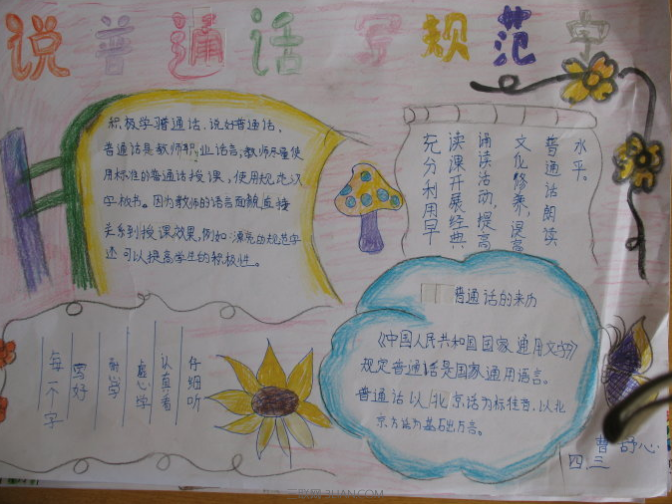 说普通话 写规范字
积极学习普通话、说好普通话,
普通话是教师职业语言,教师尽量使
用标准的普通话授课,使用规范汉
字板书。因为教师的语言面貌直接
关系到授课效果,例如:漂亮的规范字
还可以提高学生的积极性。
充分利用早
读课开展经典
诵读活动,提高
文化修养,提高
普通话朗读
水平。
普通话的来历
《中国人民共和国国家通用文字》
规定普通话是国家通用语言。
普通话以北京话为标准音,以北
京方话为基础方言。
每一个字
写好
勤学
虚心学
认真看
仔细听
四、三
曹舒心